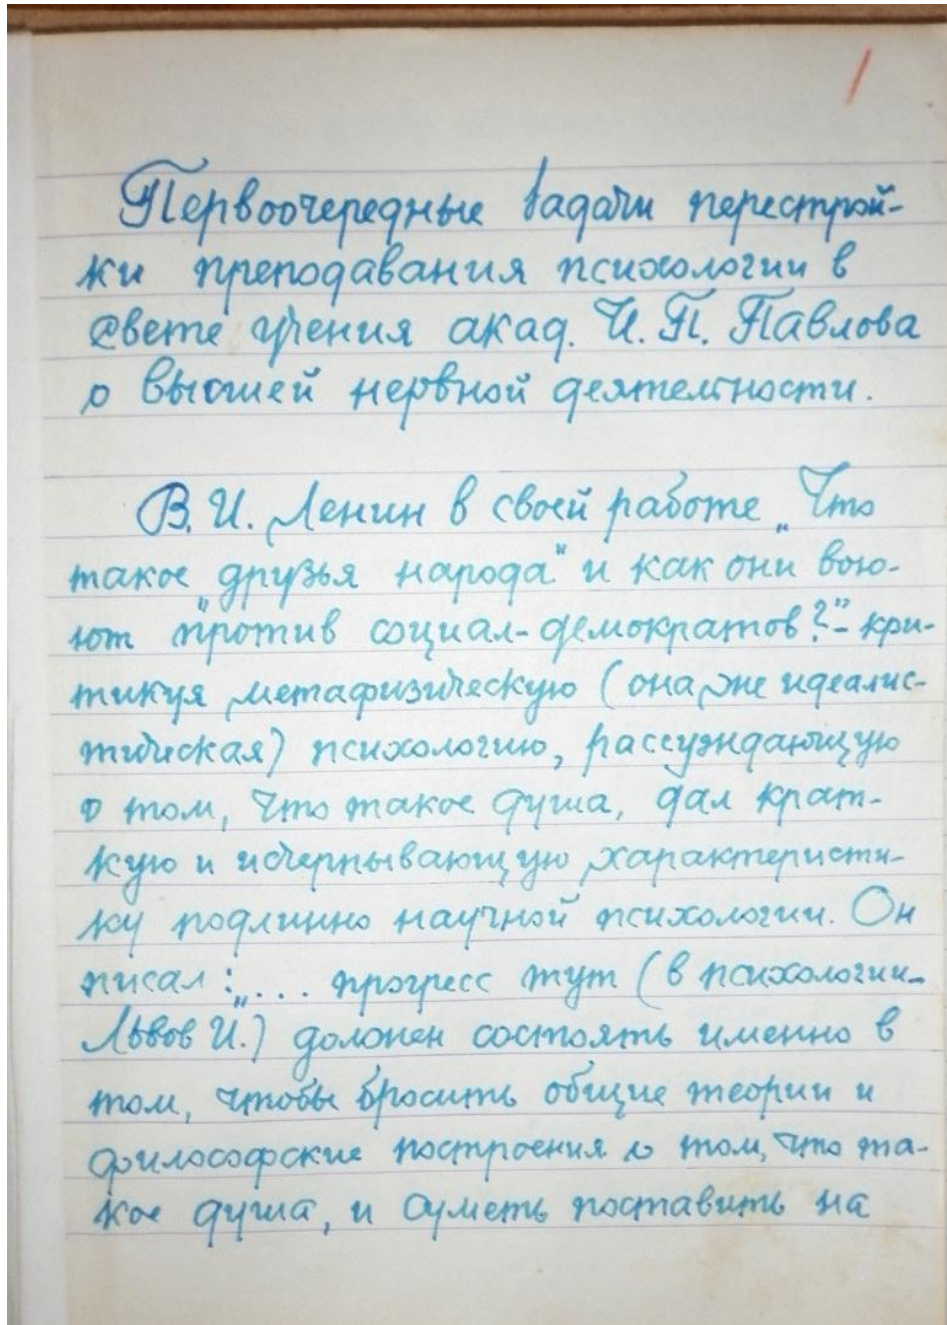 1
Первоочередные задачи перестрой-
ки преподавания психологии в
свете учения акад. И. П. Павлова
о высшей нервной деятельности.
В. И. Ленин в своей работе „Что
такое „друзья народа" и как они вою-
ют против социал-демократов?" - кри-
тикуя метафизическую (она же идеалис-
тическая) психологию, рассуждающую
о том, что такое душа, дал крат-
кую и исчерпывающую характеристи-
ку подлинно научной психологии. Он
писал: „... прогресс тут (в психологии -
Львов И.) должен состоять именно в
том, чтобы бросить общие теории и
философские построения о том, что та-
кое душа, и суметь поставить на